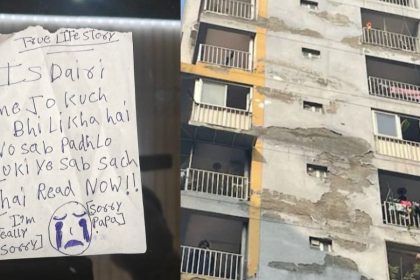 TRUE LIFE STORY
IS Dairi
me Jo kuch
Bhi Likha hai
Vo sab Padh Lo
Ye sab sach
hai Read Now!!
I'm
eally
sorry]
[sorry
Papa]